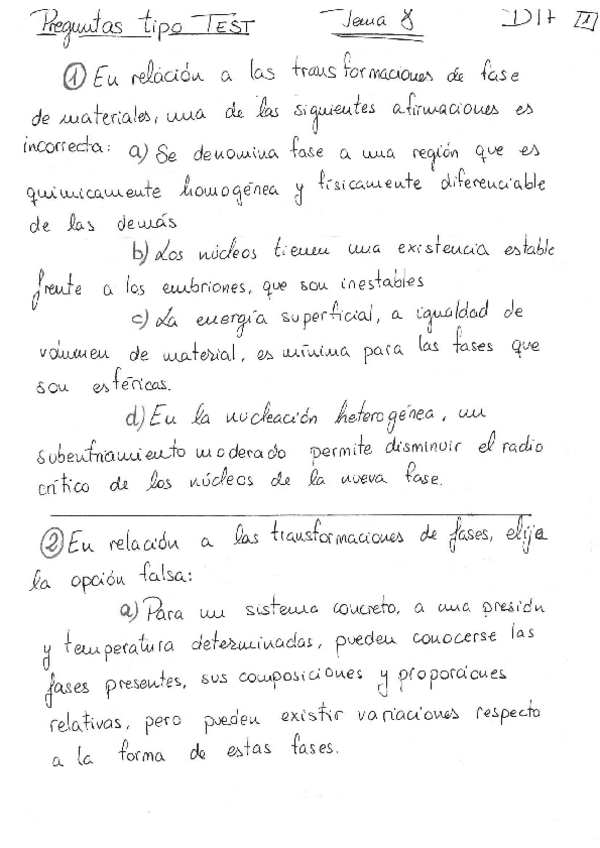 Preguntas tipo TEST Tema 8 DIT 1
① En relación a las transformaciones de fase
de materiales, una de las siguientes afirmaciones es
incorrecta: a) Se denomina fase a una región que es
químicamente homogénea y físicamente diferenciable
de las demás
b) Los núcleos tienen una existencia estable
frente a los embriones, que son inestables
c) La energía superficial, a igualdad de
volumen de material, es mínima para las fases que
son esféricas.
d) En la nucleación heterogénea, un
subenfriamiento moderado permite disminuir el radio
crítico de los núcleos de la nueva fase.
② En relación a las transformaciones de fases, elija
la opción falsa:
a) Para un sistema concreto, a una presión
y temperatura determinadas, pueden conocerse las
fases presentes, sus composiciones y proporciones
relativas, pero pueden existir variaciones respecto
a la forma de estas fases.